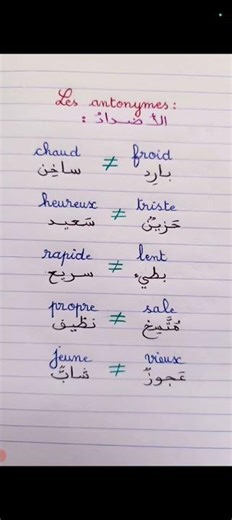 Les antonymes:
الأضدادُ :
chaud ≠ froid
ساخِن بارِد
heureux ≠ triste
سَعيد حَزينٌ
rapide ≠ lent
سريع بطيء
propre ≠ sale
نظيف مُتَّسِخ
jeune ≠ vieux
شابٌّ عَجوزٌ